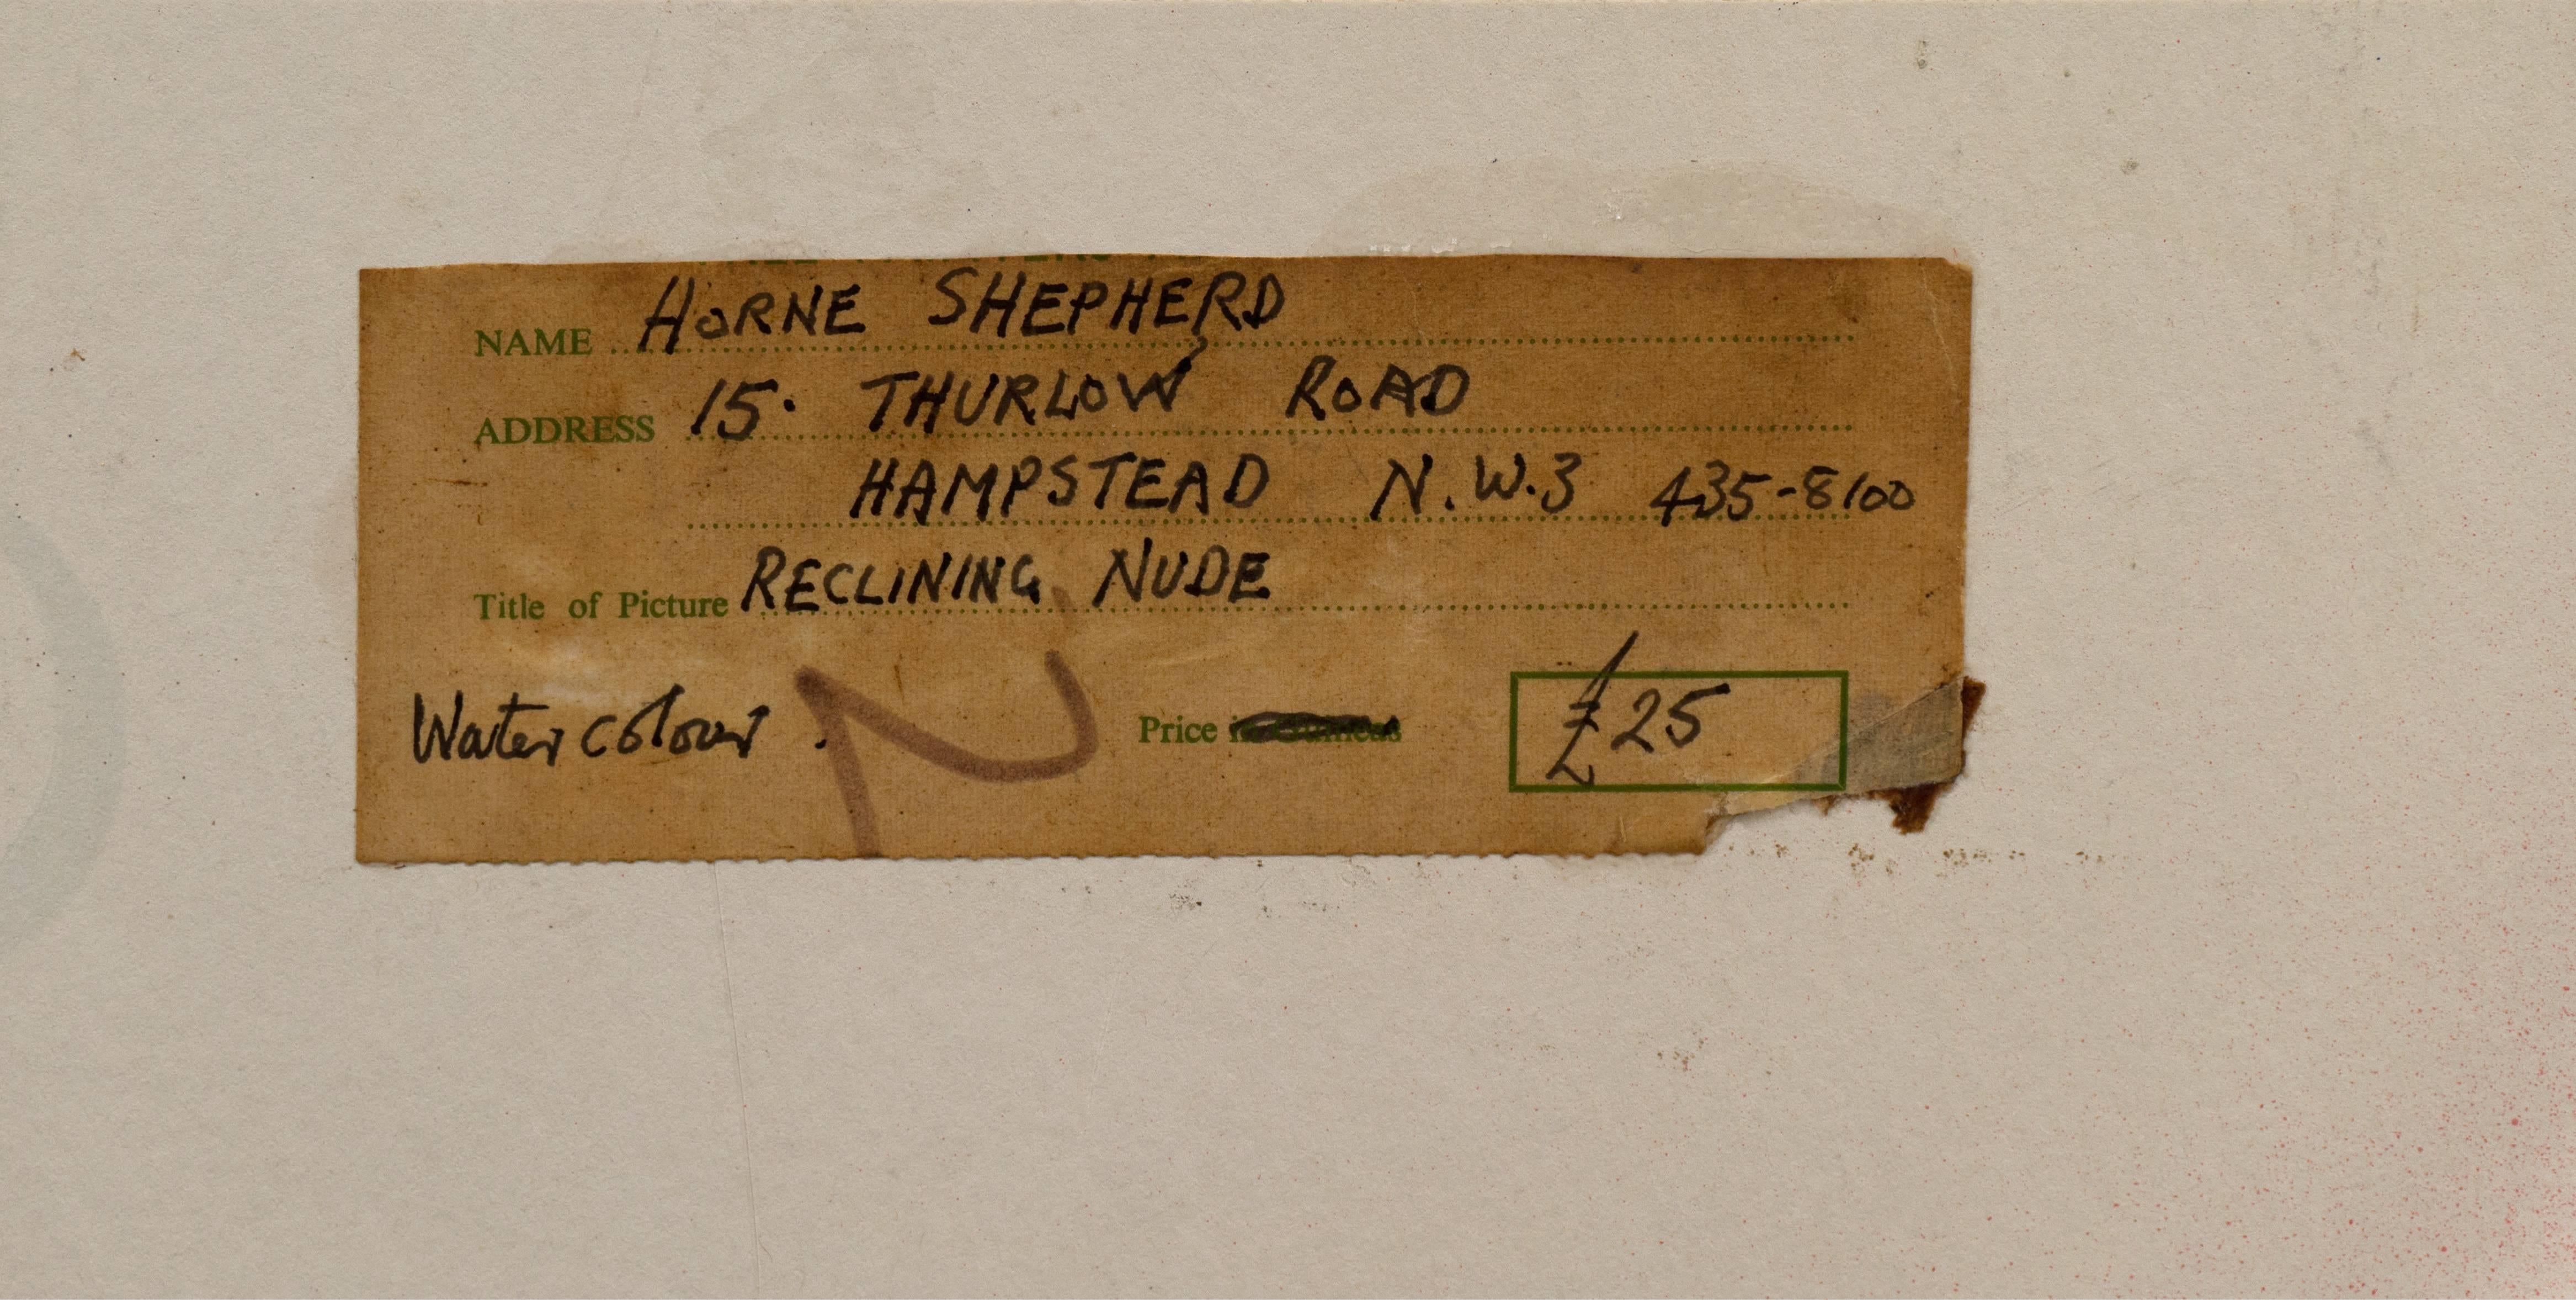 NAME HORNE SHEPHERD
ADDRESS 15. THURLOW ROAD
HAMPSTEAD N.W.3 435-8100
Title of Picture RECLINING NUDE
Water colour. Price in Guineas £25